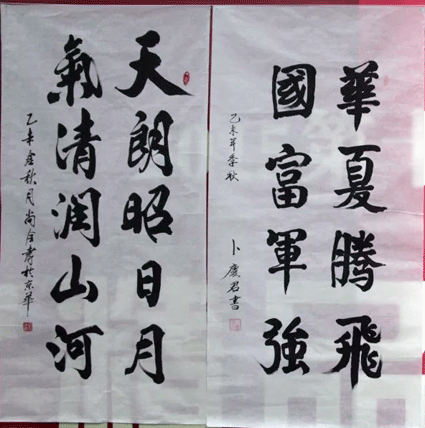 華夏騰飛
國富軍強
乙未年季秋
卜慶君書
天朗昭日月
氣清潤山河
乙未
秋月尚
書於京華